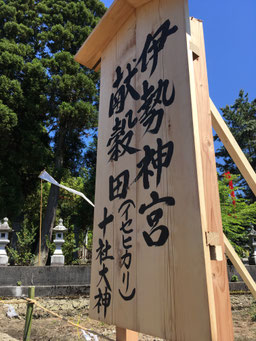 伊勢神宮
献穀田
(イセヒカリ)
十社大神